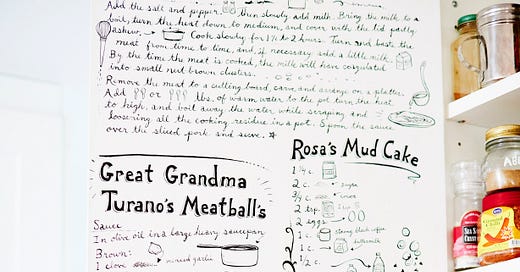 Add the salt and pepper. then slowly add milk. Bring the milk to a
boil, turn the heat down to medium, and cover with the lid partly
askew. Cook slowly for 1½ to 2 hours. Turn and baste the
meat from time to time, and, if necessary add a little milk.
By the time the meat is cooked, the milk will have coagulated
into small nut-brown clusters.
Remove the meat to a cutting board, carve and arrange on a platter.
Add or tbs. of warm water to the pot turn the heat
to high, and boil away the water while scraping and
loosening all the cooking residue in a pot. Spoon the sauce
over the sliced pork and serve.
Great Grandma
Turano's Meatball's
Sauce
In olive oil in a large heavy saucepan
Brown:
1 clove minced garlic
Rosa's Mud Cake
1¼ c.
2 c. sugar
¾ c.
2 tsp
2 eggs
1 c. strong black coffee
1 c. buttermilk
1
SEA S